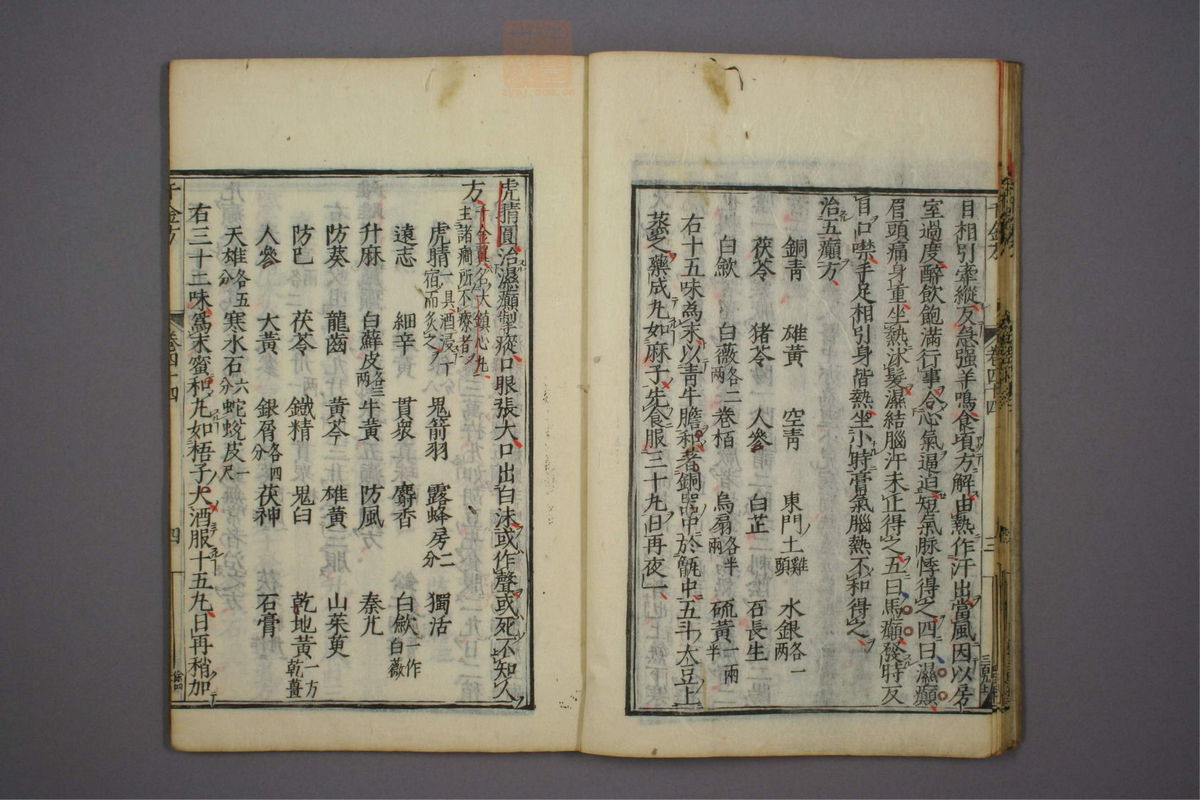 目相引牽縱反急强羊鳴食頃方解由熱作汗出當風因以房
室過度醉飲飽滿行事令心氣逼迫短氣脉悸得之四曰濕癲
眉頭痛身重坐熱沐髪濕結腦汗未止得之五曰馬癲發時反
目口噤手足相引身皆熱坐小時膏氣腦熱不和得之
治五癲方
銅青 雄黄 空青 東門上雞頭 水銀各一兩
茯苓 猪苓 人參 白芷 石長生
白歛 白薇各二兩 巻栢 烏扇各半兩 硫黄一兩半
右十五味為末以青牛膽和著銅器中於甑中五斗大豆上
蒸之藥成丸如麻子先食服三十丸日再夜一
千金方 巻四十四 三
虎睛圓治濕癲掣瘲口眼張大口出白沫或作聲或死不知人
方千金翼名大鎮心丸主諸癎所不療者
虎睛一具酒浸一宿而炙之 鬼箭羽 露蜂房二分 獨活
遠志 細辛 貫衆 麝香 白歛一作白薇
升麻 白蘚皮各三兩 牛黄 防風 秦艽
防葵 龍齒 黄芩 雄黄 山茱萸
防巳 茯苓 鐵精 鬼臼 乾地黄一方乾薑
人參 大黄 銀屑各四分 茯神 石膏
天雄各五分 寒水石六分 蛇蛻皮一尺
右三十二味爲末蜜和丸如梧子大酒服十五丸日再稍加
千金方 巻四十四 四